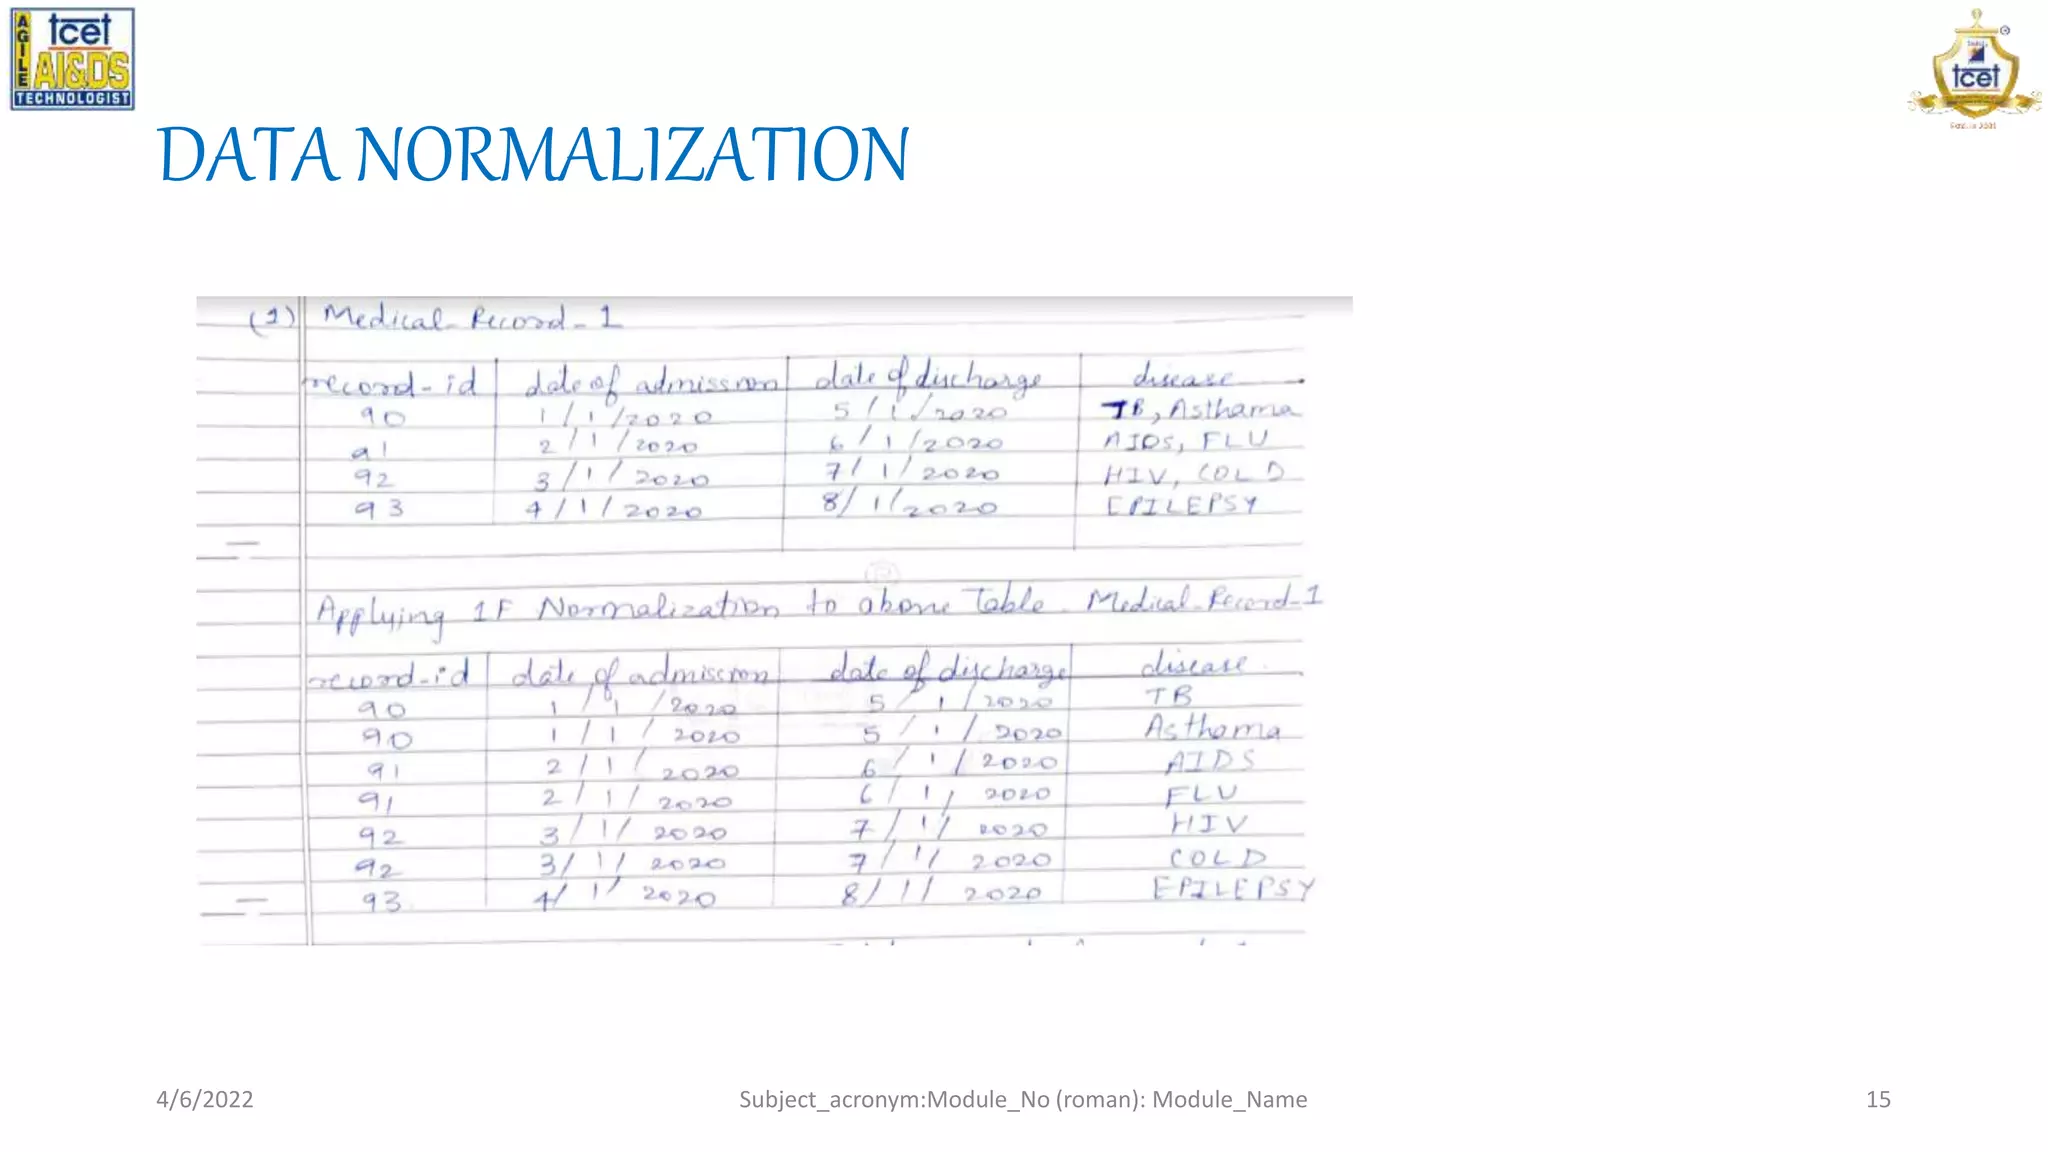 AGILE
tcet
AI&DS
TECHNOLOGIST
tcet
DATA NORMALIZATION
(1) Medical_Record_1
record-id date of admission date of discharge disease
90 1/1/2020 5/1/2020 TB, Asthama
91 2/1/2020 6/1/2020 AIDS, FLU
92 3/1/2020 7/1/2020 HIV, COLD
93 4/1/2020 8/1/2020 EPILEPSY
Applying 1F Normalization to above Table. Medical_Record_1
record-id date of admission date of discharge disease.
90 1/1/2020 5/1/2020 TB
90 1/1/2020 5/1/2020 Asthama
91 2/1/2020 6/1/2020 AIDS
91 2/1/2020 6/1/2020 FLU
92 3/1/2020 7/1/2020 HIV
92 3/1/2020 7/1/2020 COLD
93 4/1/2020 8/1/2020 EPILEPSY
4/6/2022 Subject_acronym:Module_No (roman): Module_Name 15